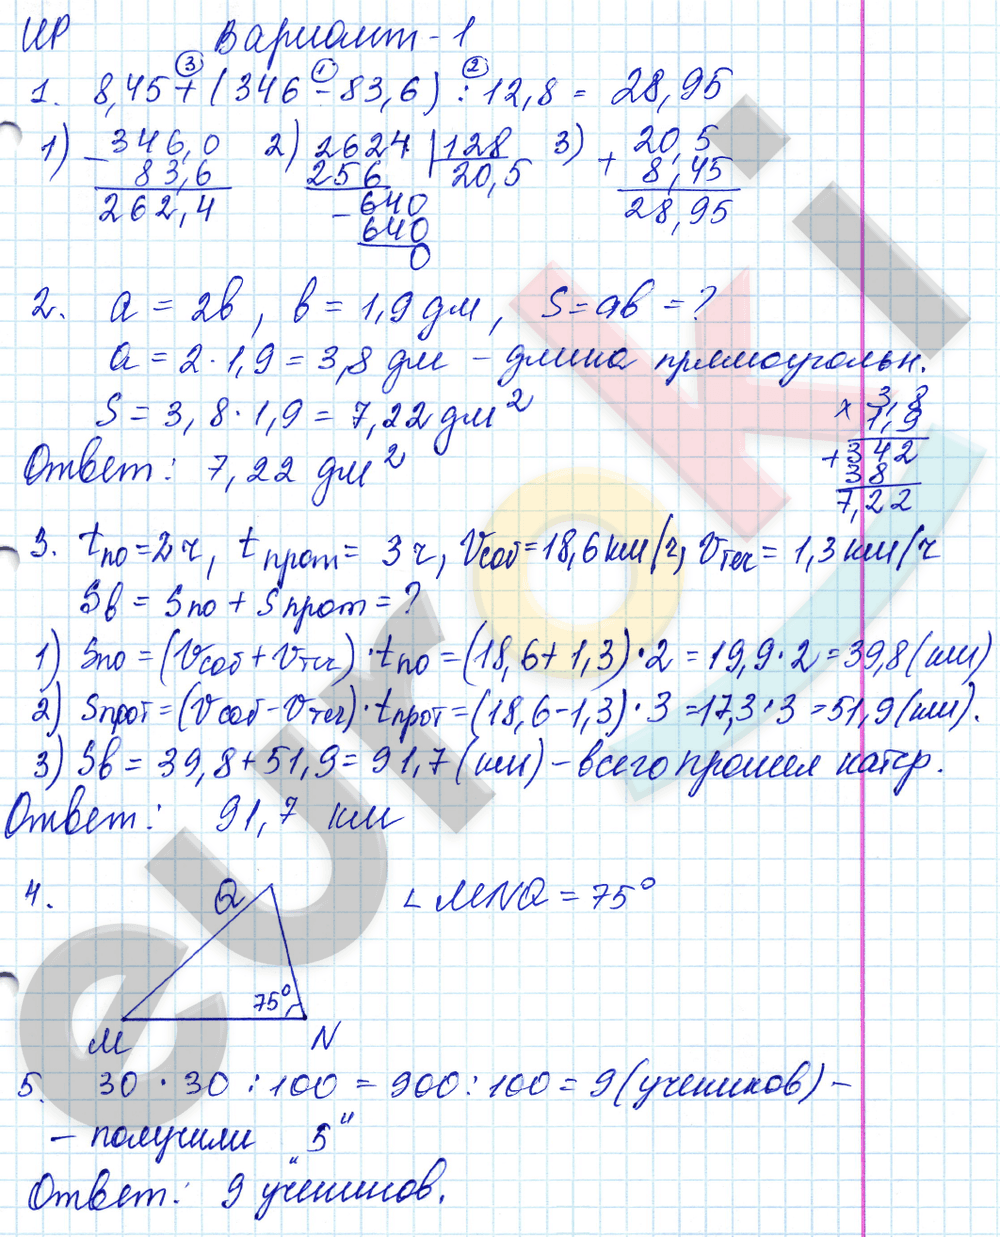 ИР Вариант - 1
1. 8,45 + (346 - 83,6) : 12,8 = 28,95
③ ① ②
1) 346,0 2) 2624 | 128 3) 20,5
- 83,6 256 20,5 + 8,45
262,4 - 640 28,95
640
0
2. a = 2b, b = 1,9 дм, S = ab = ?
a = 2 · 1,9 = 3,8 дм - длина прямоугольн.
S = 3,8 · 1,9 = 7,22 дм²
Ответ: 7,22 дм²
x 3,8
1,9
+ 342
38
7,22
3. tпо = 2ч, tпрот = 3ч, Vсоб = 18,6 км/ч, Vтеч = 1,3 км/ч
Sв = Sпо + Sпрот = ?
1) Sпо = (Vсоб + Vтеч) · tпо = (18,6 + 1,3) · 2 = 19,9 · 2 = 39,8 (км)
2) Sпрот = (Vсоб - Vтеч) · tпрот = (18,6 - 1,3) · 3 = 17,3 · 3 = 51,9 (км).
3) Sв = 39,8 + 51,9 = 91,7 (км) - всего прошел катер.
Ответ: 91,7 км
4. Q ∠MNQ = 75°
75°
M N
5. 30 · 30 : 100 = 900 : 100 = 9 (учеников) -
- получили „5"
Ответ: 9 учеников.
euroki